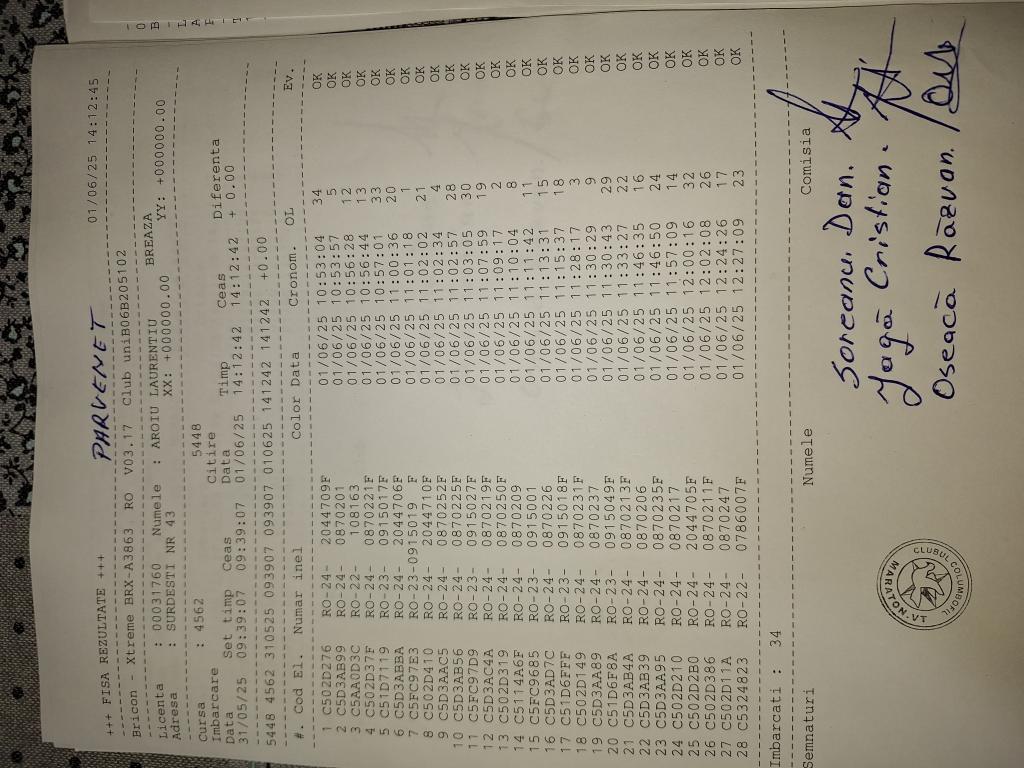 PARVENET
+++ FISA REZULTATE +++ 01/06/25 14:12:45
Bricon - Xtreme BRX-A3863 RO V03.17 Club uniB06B205102
Licenta : 00031760 Numele : AROIU LAURENTIU BREAZA
Adresa : SURDESTI NR 43 XX: +000000.00 YY: +000000.00
Cursa : 4562 5448
Imbarcare Citire
Data Set timp Ceas Data Timp Ceas Diferenta
31/05/25 09:39:07 09:39:07 01/06/25 14:12:42 14:12:42 + 0.00
5448 4562 310525 093907 093907 010625 141242 141242 +0.00
#. Cod El. Numar inel Color Data Cronom. OL Ev.
1 C502D276 RO-24- 2044709F 01/06/25 10:53:04 34 OK
2 C5D3AB99 RO-24- 0870201 01/06/25 10:53:57 5 OK
3 C5AA0D3C RO-22- 108163 01/06/25 10:56:28 12 OK
4 C502D37F RO-24- 0870221F 01/06/25 10:56:44 13 OK
5 C51D7119 RO-23- 0915017F 01/06/25 10:57:01 33 OK
6 C5D3ABBA RO-24- 2044706F 01/06/25 11:00:36 20 OK
7 C5FC97E3 RO-23-0915019 F 01/06/25 11:01:18 1 OK
8 C502D410 RO-24- 2044710F 01/06/25 11:02:02 21 OK
9 C5D3AAC5 RO-24- 0870252F 01/06/25 11:02:34 4 OK
10 C5D3AB56 RO-24- 0870225F 01/06/25 11:02:57 28 OK
11 C5FC97D9 RO-23- 0915027F 01/06/25 11:03:05 30 OK
12 C5D3AC4A RO-24- 0870219F 01/06/25 11:07:59 19 OK
13 C502D319 RO-24- 0870250F 01/06/25 11:09:17 2 OK
14 C5114A6F RO-24- 0870209 01/06/25 11:10:04 8 OK
15 C5FC9685 RO-23- 0915001 01/06/25 11:11:42 11 OK
16 C5D3AD7C RO-24- 0870226 01/06/25 11:13:31 15 OK
17 C51D6FFF RO-23- 0915018F 01/06/25 11:15:37 18 OK
18 C502D149 RO-24- 0870231F 01/06/25 11:28:17 3 OK
19 C5D3AA89 RO-24- 0870237 01/06/25 11:30:29 9 OK
20 C51D6F8A RO-23- 0915049F 01/06/25 11:30:43 29 OK
21 C5D3AB4A RO-24- 0870213F 01/06/25 11:33:27 22 OK
22 C5D3AB39 RO-24- 0870206 01/06/25 11:46:35 16 OK
23 C5D3AA95 RO-24- 0870235F 01/06/25 11:46:50 24 OK
24 C502D210 RO-24- 0870217 01/06/25 11:57:09 14 OK
25 C502D2B0 RO-24- 2044705F 01/06/25 12:00:16 32 OK
26 C502D386 RO-24- 0870211F 01/06/25 12:02:08 26 OK
27 C502D11A RO-24- 0870247 01/06/25 12:24:26 17 OK
28 C5324823 RO-22- 0786007F 01/06/25 12:27:09 23 OK
Imbarcati : 34
Semnaturi Numele Comisia
Soreanu Dan.
Iagă Cristian.
Oseacă Răzvan.
CLUBUL COLUMBOFIL
MARATON.VT